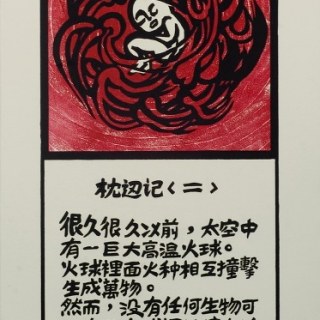 枕边记〈二〉
很久很久以前，太空中
有一巨大高温火球。
火球裡面火种相互撞擊
生成萬物。
然而，没有任何生物可